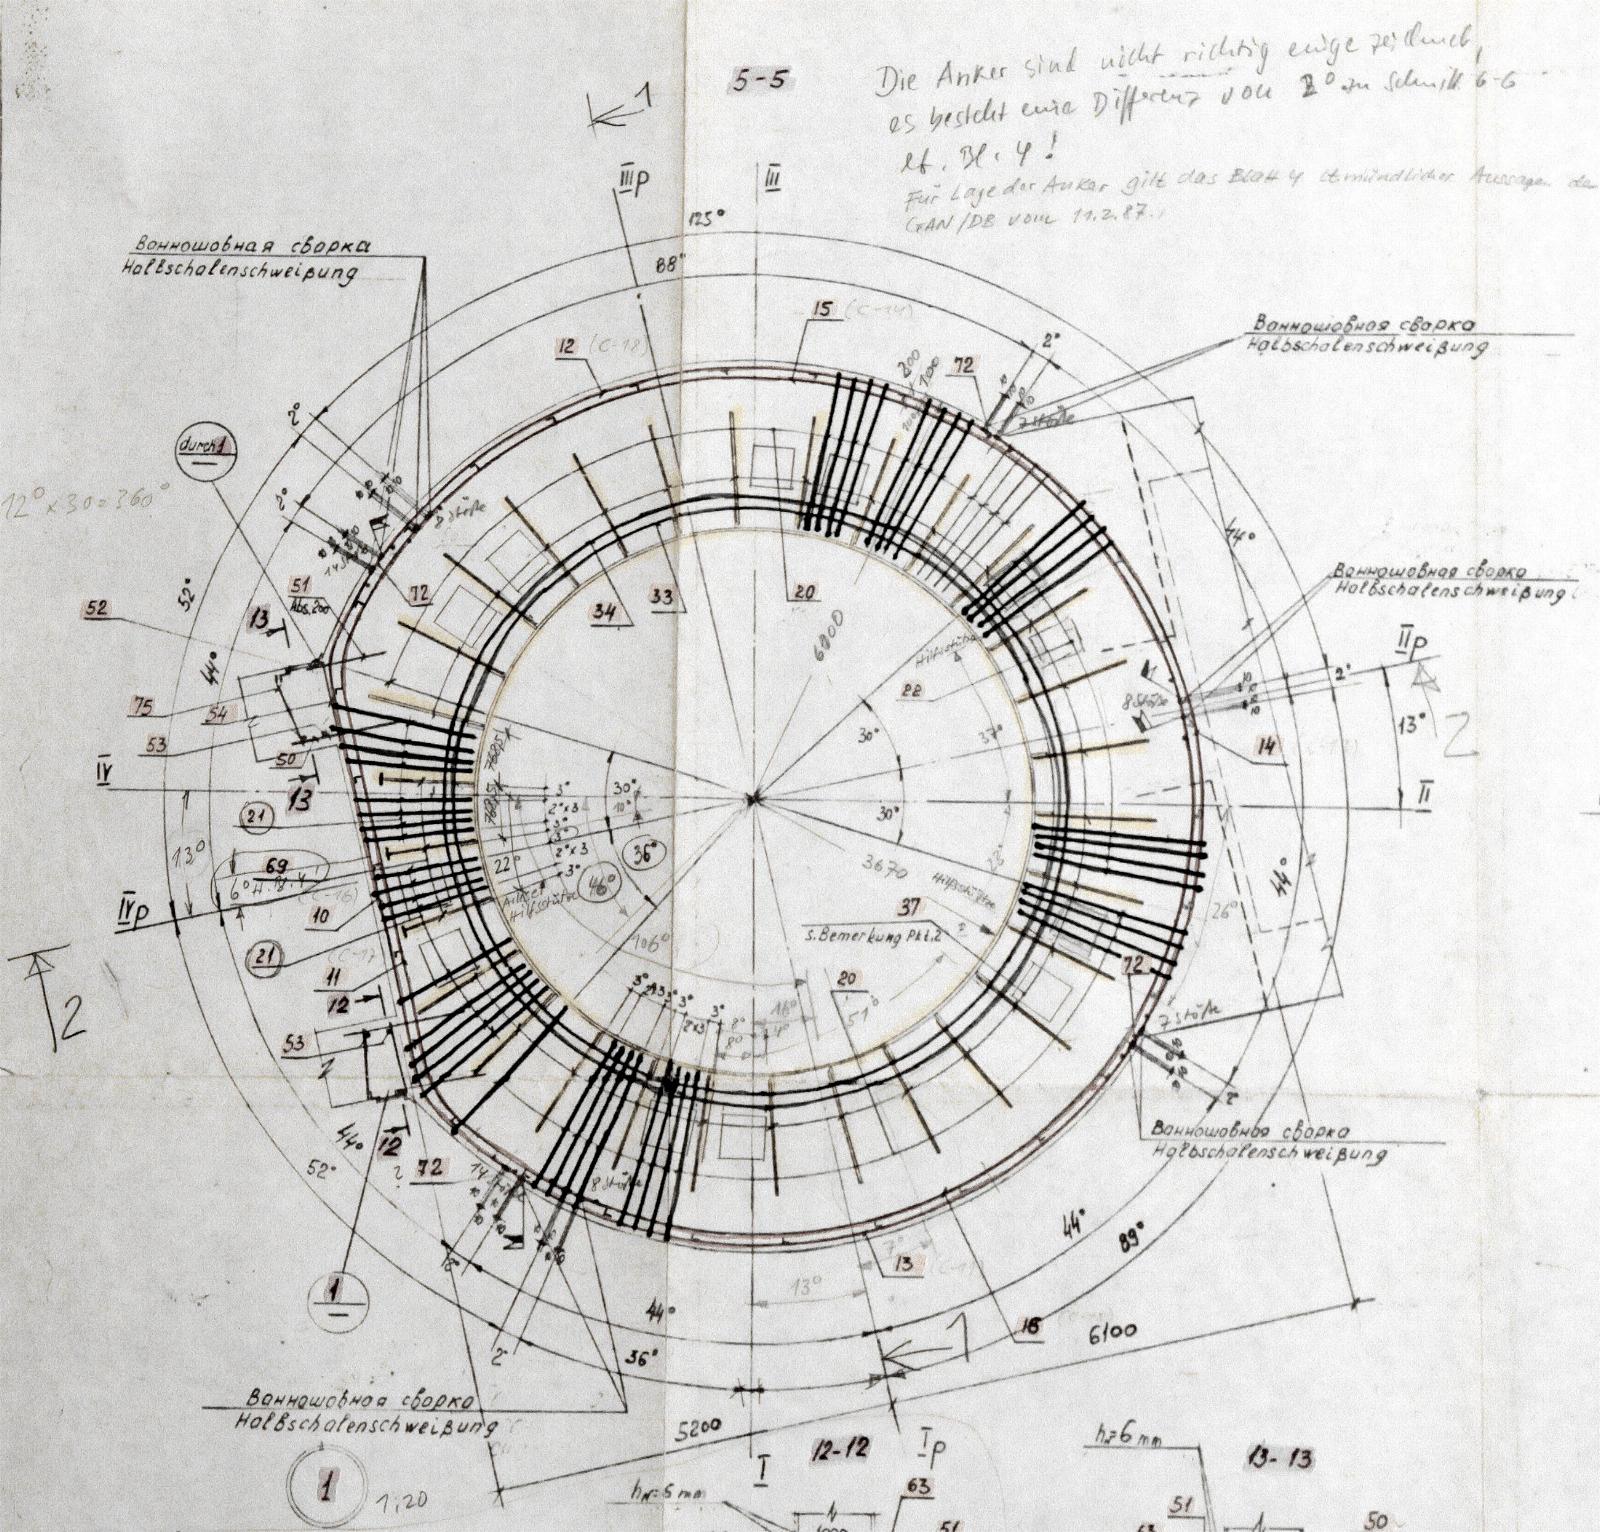 5-5
Die Anker sind nicht richtig eingezeichnet,
es besteht eine Differenz von 2° zu Schnitt 6-6
lt. Bl. 4!
Für Lage der Anker gilt das Blatt 4 lt. mündlicher Aussagen der
GAN/DB vom 11.2.87.
1
IIIp
III
125°
88°
Ванношовная сварка
Halbschalenschweißung
15 (C-14)
12 (C-18)
200
100
72
2°
7 Stöße
Ванношовная сварка
Halbschalenschweißung
2°
durch 1
12° x 30 = 360°
2°
8 Stöße
44°
52°
51
Abs. 200
72
52
13
34
33
20
6200
Ванношовная сварка
Halbschalenschweißung
IIp
44°
Hilfsstütze
22
8 Stöße
2°
75
54
53
50
30°
37°
14
13°
2
IV
13
7685
7685
3°
2°x3
3°
3°
2°x3
3°
30°
10°
30°
II
21
13°
69
6° lt. Bl. 4!
22°
36°
46°
3670
28°
Hilfsstütze
44°
IVp
10
Hilfsstütze
37
s. Bemerkung Pkt. 2
26°
21
11
12
106°
20
72
2
53
3°
3°
3°
2x3
3°
8°
16°
51°
7 Stöße
44°
52°
12
72
14
8 Stöße
2°
Ванношовная сварка
Halbschalenschweißung
1
44°
89°
7°
13
13°
44°
36°
2°
16
1
6100
Ванношовная сварка
Halbschalenschweißung
5200
I
Ip
12-12
13-13
h=6 mm
1
1:20
h=6 mm
63
51
51
63
50